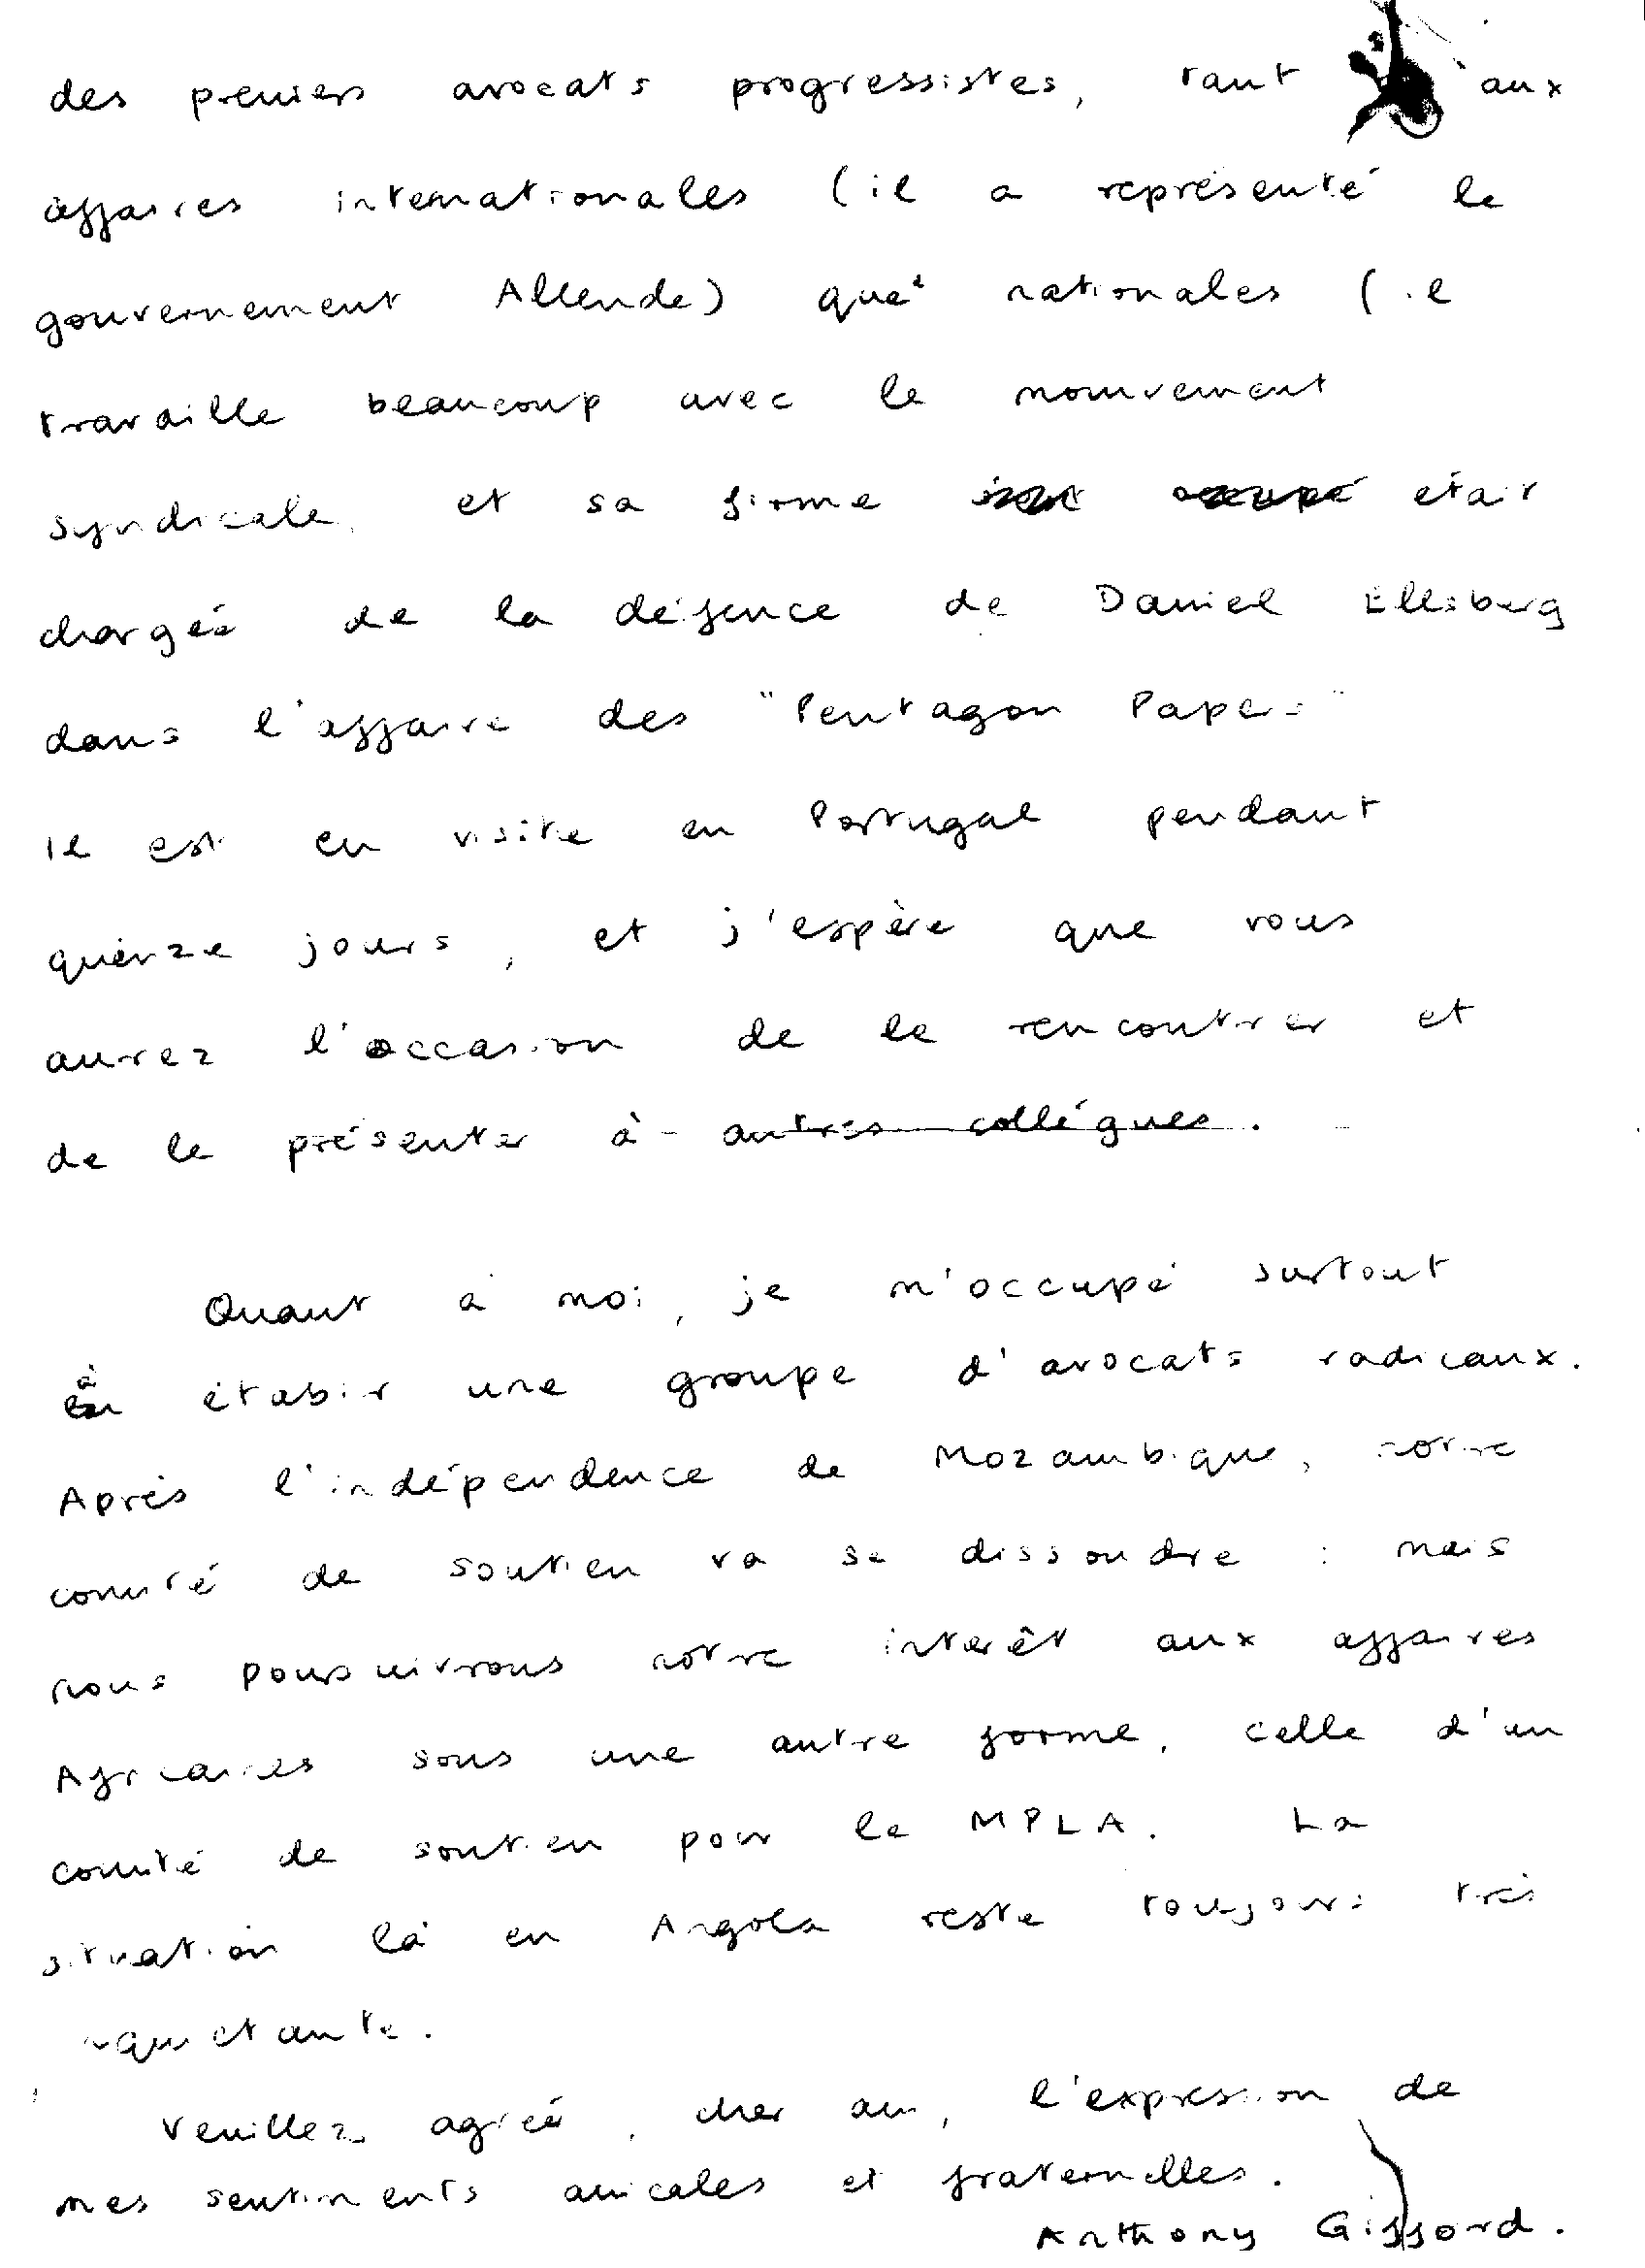 des premiers avocats progressistes, tant aux
affaires internationales (il a représenté le
gouvernement Allende) que nationales (il
travaille beaucoup avec le mouvement
syndicale, et sa firme était
chargée de la défence de Daniel Ellsberg
dans l'affaire des "Pentagon Papers"
Il est en visite en Portugal pendant
quinze jours, et j'espère que vous
aurez l'occasion de le rencontrer et
de le présenter à autres collégues.
Quant à moi, je m'occupé surtout
à étabir une groupe d'avocats radicaux.
Après l'indépendence de Mozambique, notre
comité de soutien va se dissoudre : mais
nous poursuivrons notre interêt aux affaires
Africaines sous une autre forme, celle d'un
comité de soutien pour le MPLA. La
situation là en Angola reste toujours très
inquietante.
Veuillez agréer, cher ami, l'expression de
mes sentiments amicales et fraternelles.
Anthony Gifford.